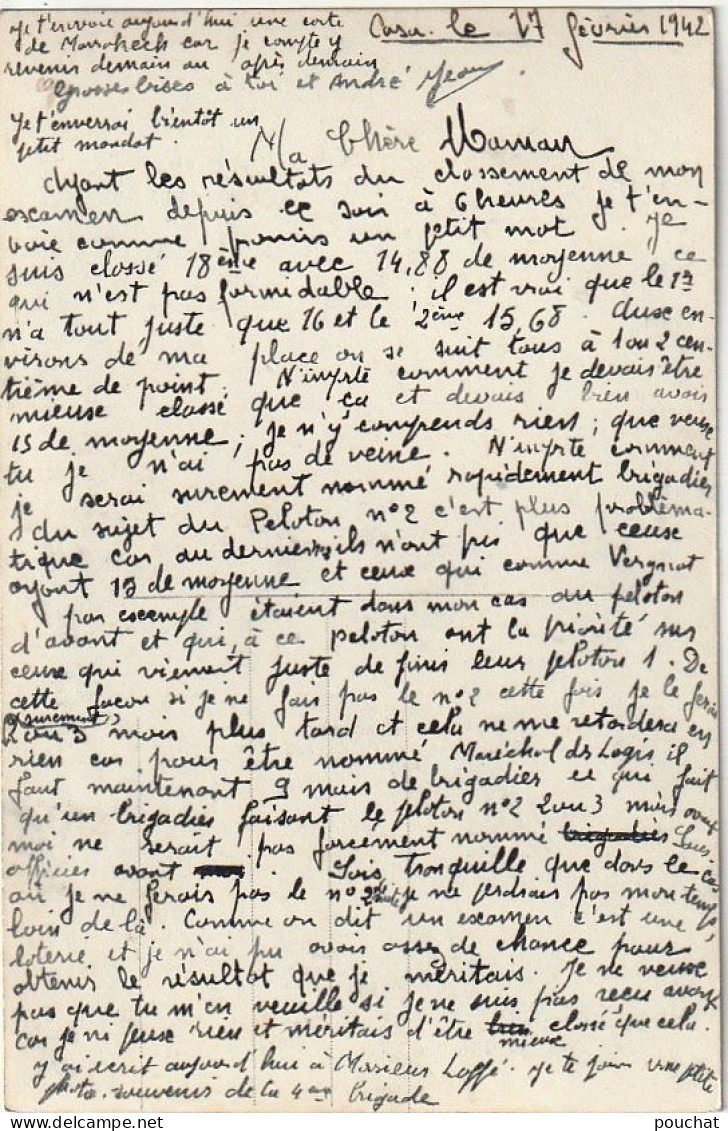 Je t'envoie aujourd'hui une carte
de Marrakech car je compte y
revenir demain ou après demain
Grosses bises à toi et André Jean
Je t'enverrai bientôt un
petit mandat.
Casa. le 17 février 1942
Ma Chère Maman
Ayant les résultats du classement de mon
escamen depuis ce soir à 6 heures je t'en-
voie comme promis un petit mot. Je
suis classé 18ème avec 14,88 de moyenne, ce
qui n'est pas formidable; il est vrai que le 1er
n'a tout juste que 16 et le 2ème 15,68. Aux en-
virons de ma place on se suit tous à 1 ou 2 cen-
tième de point. N'importe comment je devais être
mieux classé que ça et devais bien avoir
15 de moyenne; je n'y comprends rien; que veux
tu je n'ai pas de veine. N'importe comment
je serai surement nommé rapidement brigadier
Au sujet du Peloton n°2 c'est plus probléma-
tique car au dernier ils n'ont pris que ceux
ayant 15 de moyenne et ceux qui comme
par exemple étaient dans mon cas au peloton
d'avant et qui, à ce peloton ont la priorité sur
ceux qui viennent juste de finir leur peloton 1. De
cette façon si je ne fais pas le n°2 cette fois je le ferai
(surement)
2 ou 3 mois plus tard et cela ne me retardera en
rien car pour être nommé Maréchal des Logis il
faut maintenant 9 mois de brigadier ce qui fait
qu'un brigadier faisant le peloton n°2 2 ou 3 mois avant
moi ne serait pas forcement nommé Sous-
officier avant. Sois tranquille que dans le cas
où je ne ferais pas le n°2 je ne perdrais pas mon temps,
loin de là. Comme on dit un examen c'est une
loterie et je n'ai pu avoir assez de chance pour
obtenir le résultat que je méritais. Je ne veux
pas que tu m'en veuille si je ne suis pas reçu
car je n'y peux rien et méritais d'être mieux classé que cela.
J'ai écrit aujourd'hui à Monsieur. Je te joins une petite
photo. souvenir de la 4ème brigade
pouchat